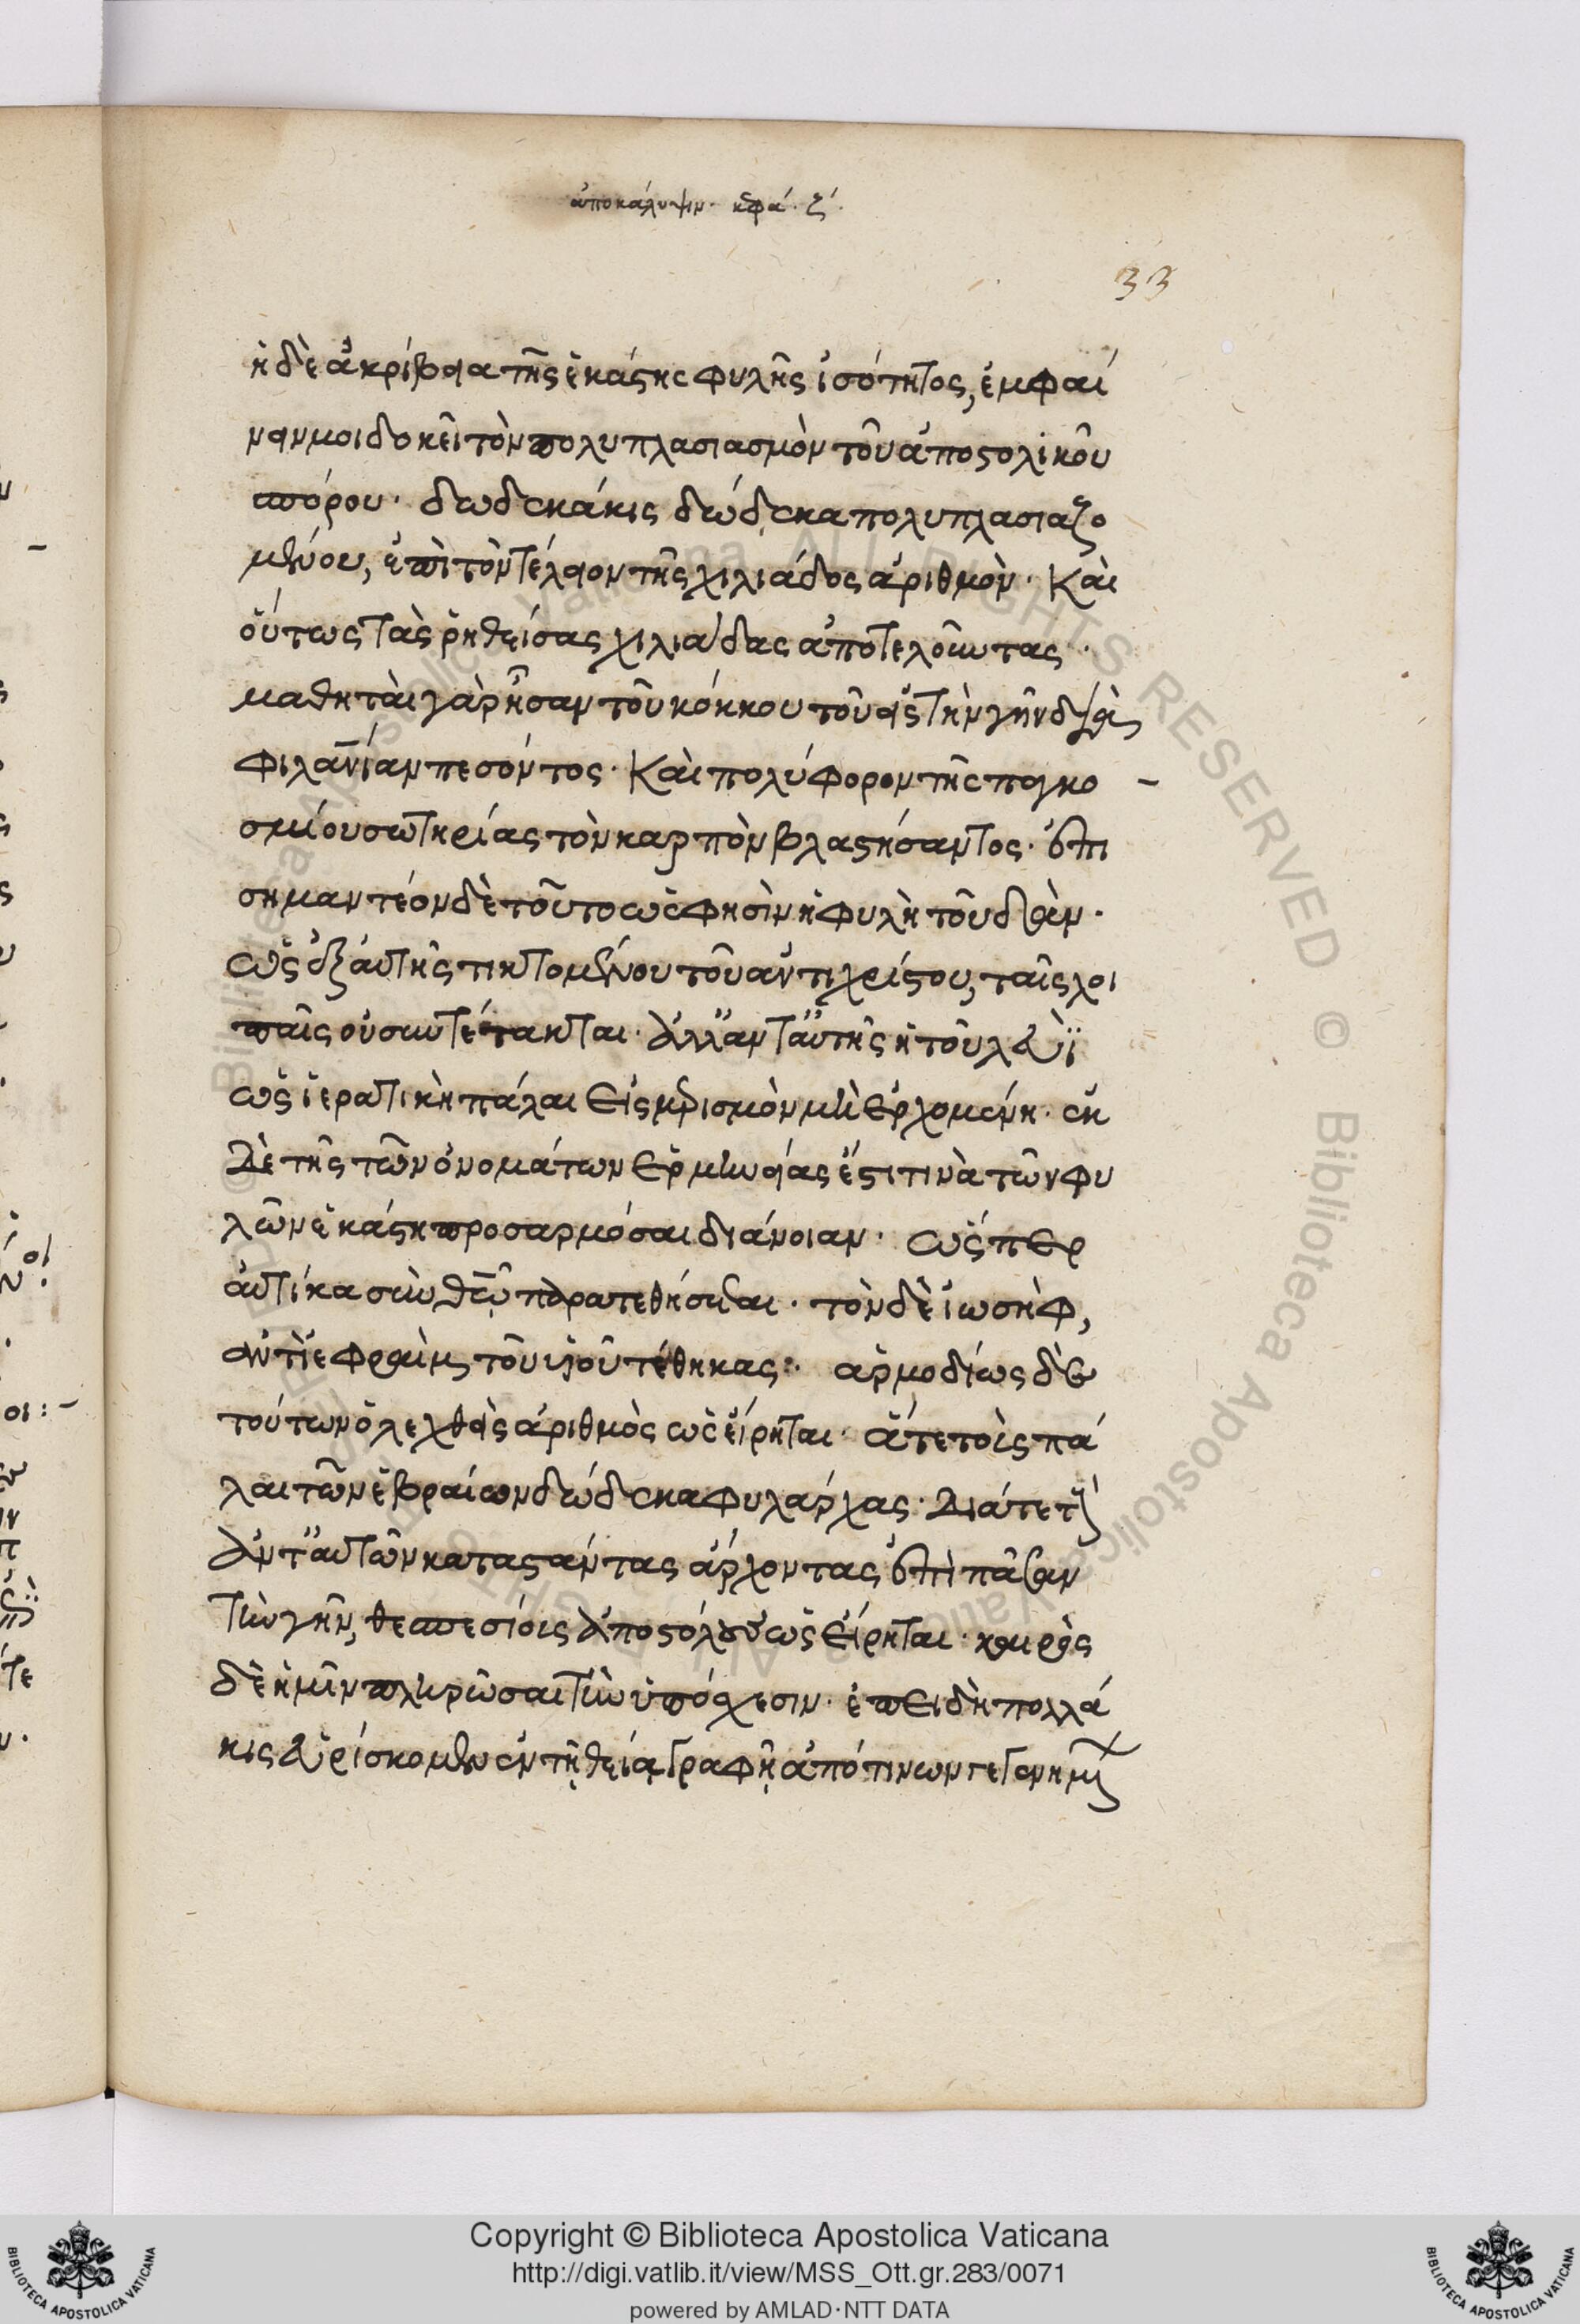 ἀποκάλυψιν· κεφά· ζ΄·
33
ἡ δὲ ἀκρίβεια τῆς ἑκάστης φυλῆς ἰσότητος, ἐμφαί
νειν μοι δοκεῖ τὸν πολυπλασιασμὸν τοῦ ἀποστολικοῦ
σπόρου· δωδεκάκις δώδεκα πολυπλασιαζο
μένου, ἐπὶ τὸν τέλειον τῆς χιλιάδος ἀριθμὸν· Καὶ
οὕτως τὰς ῥηθείσας χιλιάδας ἀποτελοῦντας·
μαθηταὶ γὰρ ἦσαν τοῦ κόκκου τοῦ εἰς τὴν γῆν διὰ
φιλανίαν πεσόντος· Καὶ πολύφορον τῆς παγκο
σμίου σωτηρίας τὸν καρπὸν βλαστήσαντος· ἐπι
σημαντέον δὲ τοῦτο ὡς φησὶν ἡ φυλὴ τοῦ δὰν·
ὡς ἐξ αὐτῆς τικτομένου τοῦ ἀντιχρίστου, ταῖς λοι
παῖς οὐ συντέτακται· ἀλλ' ἀντ' αὐτῆς ἡ τοῦ λευὶ
ὡς ἱερατικὴ πάλαι εἰς μερισμὸν μὴ ἐρχομένη· ἐκ
δὲ τῆς τῶν ὀνομάτων ἑρμηνείας ἔστι τινὰ τῶν φυ
λῶν ἑκάστη προσαρμόσαι διάνοιαν· ὥσπερ
αὐτίκα σὺν θεῷ παρατεθήσεται· τὸν δὲ ἰωσὴφ,
ἀντὶ ἐφραὶμ τοῦ υἱοῦ τέθηκας· ἁρμοδίως δὲ
τούτων ὁ λεχθεὶς ἀριθμὸς ὡς εἴρηται· ἅτε τοὶς πά
λαι τῶν ἑβραίων δώδεκα φυλάρχας· Διά τε τοὺς
ἀντ' αὐτῶν καταστάντας ἄρχοντας ἐπὶ πᾶσαν
τὴν γῆν, θεσπεσίοις ἀποστόλους ὡς εἴρηται· καιρὸς
δὲ ἡμῖν πληρῶσαι τὴν ὑπόσχεσιν· ἐπειδὴ πολλά
κις εὑρίσκομεν ἐν τῇ θείᾳ γραφῇ ἀπό τινων γεγενημένων
Copyright © Biblioteca Apostolica Vaticana
http://digi.vatlib.it/view/MSS_Ott.gr.283/0071
powered by AMLAD·NTT DATA